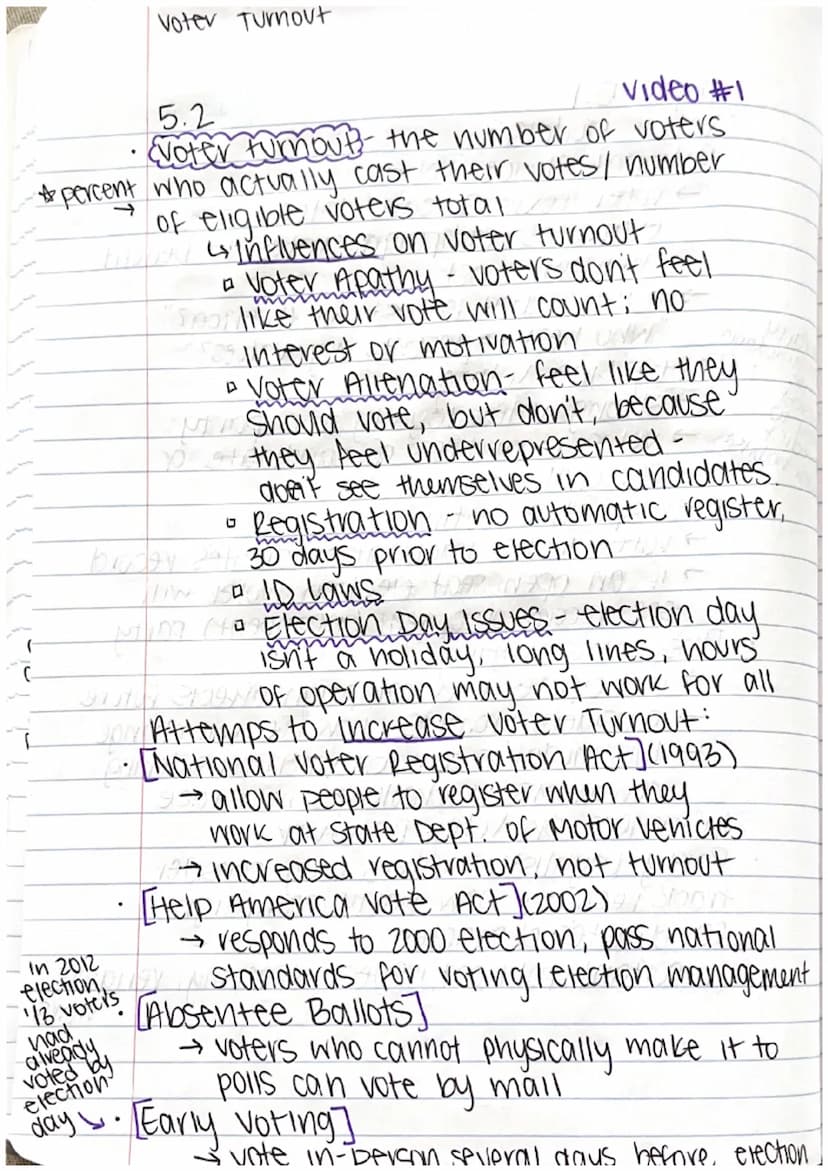 Voter Turnout
Video #1
5.2
· Voter turnout - the number of voters
☆ percent → who actually cast their votes / number
of eligible voters total
↳ Influences on voter turnout
▫ Voter Apathy - voters don't feel
like their vote will count; no
interest or motivation
▫ Voter Alienation - feel like they
should vote, but don't, because
they feel underrepresented -
don't see themselves in candidates.
▫ Registration - no automatic register,
30 days prior to election
▫ ID Laws
▫ Election Day Issues - election day
isn't a holiday, long lines, hours
of operation may not work for all
Attemps to Increase Voter Turnout:
· [National Voter Registration Act] (1993)
→ allow people to register when they
work at State Dept. of Motor Vehicles
→ increased registration, not turnout
· [Help America Vote Act] (2002)
→ responds to 2000 election, pass national
standards for voting / election management
· [Absentee Ballots]
→ voters who cannot physically make it to
polls can vote by mail
In 2012
election,
1/3 voters
had
already
voted by
election
day ↘
· [Early Voting]
→ vote in-person several days before election